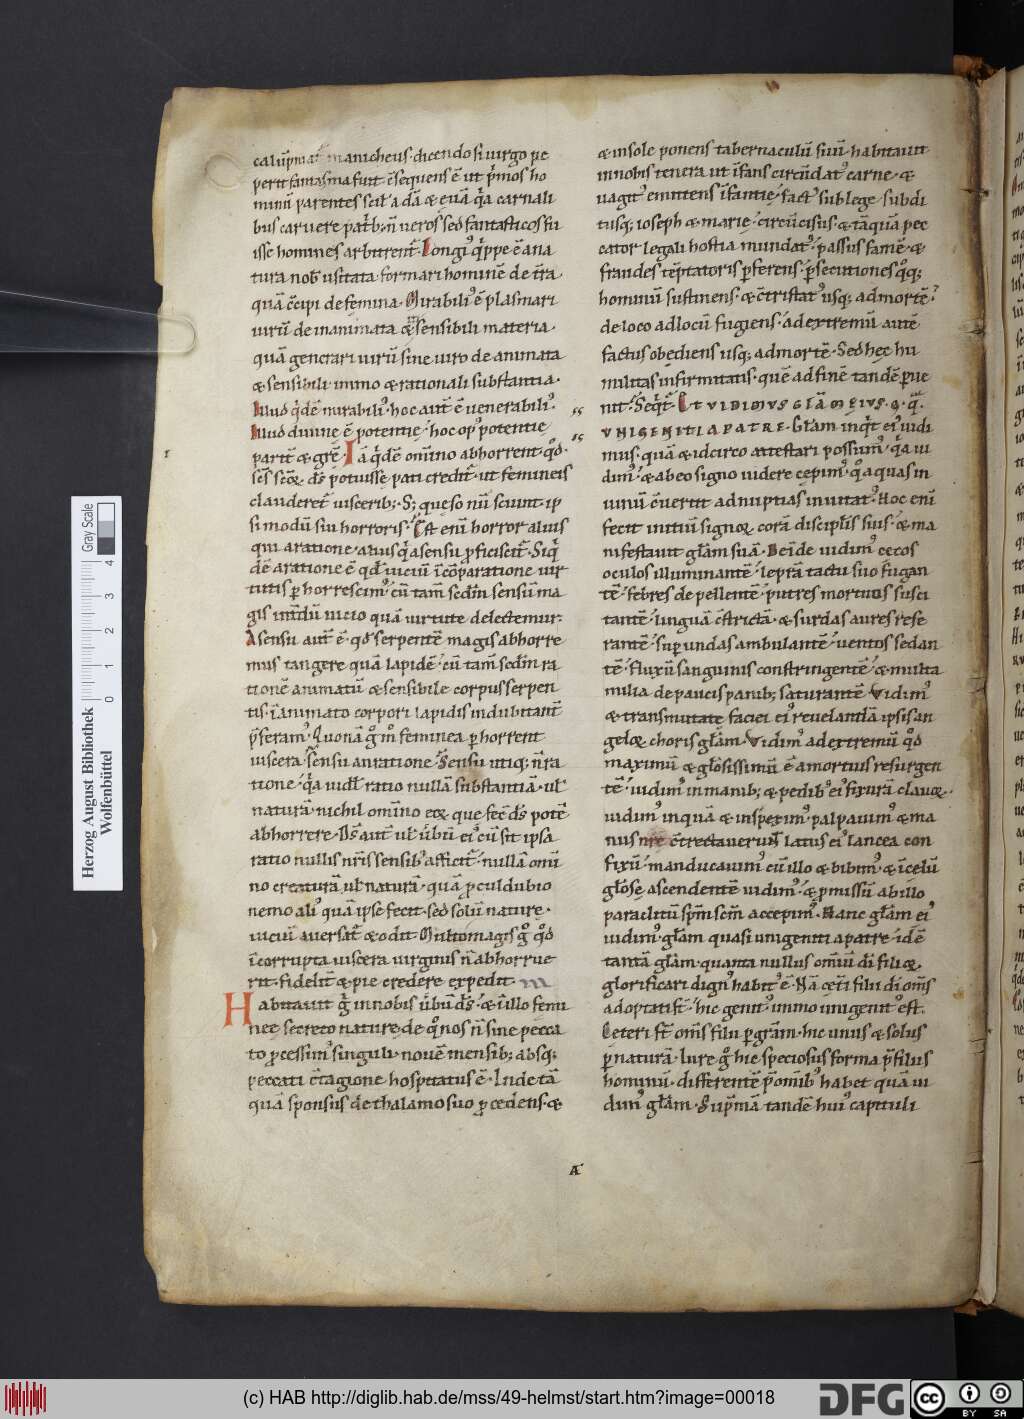 calūpniat̄ manicheus· dicendo si uirgo pe
perit fantasma fuit· c̄sequens ē ut p̄mos ho
minū parentes scil& adā & euā q̄a carnali
bus caruere patibꝫ n̄ ueros sed fantasticos fu
isse homines arbitrent̄· Longi᾽ q̄ppe ē a na
tura nob᾽ usitata formari hominē de t̄ra·
quā c̄cipi de femina· Mirabili᾽ ē plasmari
uirū de inanimata & insensibili materia·
quā generari uirū sine uiro de animata
& sensibili immo & rationali substantia·
Illud q̄dē mirabili᾽· hoc aut̄ ē uenerabili᾽·
Illud diuine ē potentie· hoc op᾽ potentie
parit̄ & gr̄e· Iā q̄dē om̄ino abhorrent qd̓·
clauderet̄ uisceribꝫ· Sꝫ queso nū sciunt ip
si modū sui horroris· Est enī horror alius
qui a ratione· alius q̄ a sensu p̄ficiscit̄· Siq̄
dē a ratione ē qd̓ uiciū ī cōparatione uir
tutis p̱horrescim᾽· cū tam̄ sedm̄ sensū ma
gis int̄dū uicio quā uirtute delectemur·
A sensu aut̄ ē· qd̓ serpentē magis abhorre
mus tangere quā lapidē· cū tam̄ sedm̄ ra
tionē animatū & sensibile corpus serpen
tis· īanimato corpori lapidis indubitant̄
p̄feram᾽· Quonā g̊ m̊ feminea p̱horrent
uiscera· sensu an ratione· Sensu utiqꝫ n̄ ra
tione· q̄a uidel̄ ratio nullā substantiā· ul̄
naturā nichil om̄ino eoꝝ que fec̄ ds̄ potē
abhorrere· Ds̄ aut̄ ul̄ ūbū ei᾽ cū sit ipsa
ratio nullis nr̄is sensib᾽ afficit̄· nullā omī
no creaturā ul̄ naturā· quā p̱cul dubio
nemo ali᾽ quā ipse fecit· sed solū nature·
uiciū auersat̄ & odit· Multo magis g̊ qd̓
īcorrupta uiscera uirginis n̄ abhorrue
rit· fidelit̄ & pie credere expedit·
Habitauit g̊ in nobis ūbū ds̄· & ī illo femi
nee secreto nature· de q̊ nos n̄ sine pecca
to p̱cessim᾽ singuli· nouē mensibꝫ absqꝫ
peccati c̄tagione hospitatus ē· Inde tā
quā sponsus de thalamo suo p̱cedens· &
& in sole ponens tabernaculū suū· habitauit
in nobis tenera ut īfans circūdat᾽ carne· &
uagit᾽ emittens īfantie· fact᾽ sub lege· subdi
tusqꝫ ioseph & marie· circūcisus· & tāquā pec
cator legali hostia mundat᾽· passus famē· &
fraudes tēptatoris p̱ferens· p̱secutiones q̊qꝫ
hominū sustinens· & c̄tristat᾽ usqꝫ ad mortē·
de loco ad locū fugiens· ad extremū autē
factus obediens usqꝫ ad mortē· Sed hec hu
militas infirmitatis· quē ad finē tandē p̱ue
nit· Seq̄t̄· ET VIDIMVS GLĀM EIVS· Q̄· Q̄·
VNIGENITI A PATRE· Glam̄ inq̄t ei᾽ uidi
mus· quā & idcirco attestari possum᾽· q̄a ui
dim᾽· & ab eo signo uidere cepim᾽· q̊ aquas in
uinū c̄uertit ad nuptias inuitat᾽· Hoc enī
fecit initiū signoꝝ corā discipl̄is suis· & ma
nifestauit glam̄ suā· Deīde uidim᾽ cecos
oculos illuminantē· leprā tactu suo fugan
tē· febres depellentē· putres mortuos susci
tantē· linguā c̄strictā· & surdas aures rese
rantē· sup̱ undas ambulantē· uentos sedan
tē· fluxū sanguinis constringentē· & multa
milia de paucis panibꝫ saturantē· Vidim᾽
& transmutate faciei ei᾽ reuelantiā ipsis an
geloꝝ choris glam̄· Vidim᾽ ad extremū qd̓
maximū & glosissimū ē a mortuis resurgen
tē· uidim᾽ in manibꝫ & pedib᾽ ei᾽ fixurā clauoꝝ·
uidim᾽ inquā & inspexim᾽· palpauim᾽ & ma
nus nr̄e c̄trectauerunt latus ei᾽ lancea con
fixū· manducauim᾽ cū illo & bibim᾽· & ī celū
glōse ascendentē uidim᾽· & p̱missū ab illo
paraclitū sp̄m sc̄m accepim᾽· Hanc glam̄ ei᾽
uidim᾽· glam̄ quasi unigeniti a patre· id ē
tantā glam̄· quanta nullus omīū dī filioꝝ
glorificari dign᾽ habit᾽ ē· Nā cet̄i filii dī om̄s
adoptati st̄· hic genit᾽ immo unigenit᾽ est·
Ceteri st̄ om̄s filii p̱ gram̄· hic unus & solus
p̱ naturā· Iure g̊ hic speciosus forma p̄ filiis
hominū· differentē p̄ omīb᾽ habet quā ui
dim᾽ glam̄· Supmā tandē hui᾽ capituli
A
Herzog August Bibliothek
Wolfenbüttel
Gray Scale
0 1 2 3 4
(c) HAB http://diglib.hab.de/mss/49-helmst/start.htm?image=00018
DFG
cc BY SA